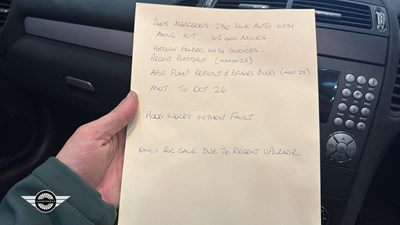 2005 MERCEDES 280 SLK AUTO WITH
AMG KIT 62000 MILES
HISTORY FOLDER WITH INVOICES.
RECENT BATTERY (MARCH 25)
ABS PUMP REBUILT & BRAKES BLED (MAY 25)
MOT TO OCT 26
HOOD WORKS WITHOUT FAULT.
ONLY FOR SALE DUE TO RECENT UPGRADE